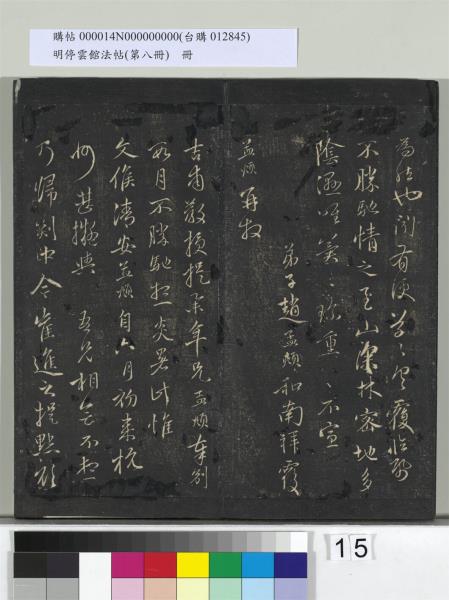 購帖 000014N000000000(台購 012845)
明停雲館法帖(第八冊) 冊
為法也間有便草々具覆臨紙
不勝馳情之至山深林密地多
陰濕唯冀々珍重々不宣
弟子趙孟頫和南拜覆
孟頫 再拜
吉甫教授提舉年兄孟頫奉別
數月不勝馳想炎暑比惟
文候清安孟頫自六月初來杭
州甚擬與 吾兄相會不想
乃歸剡中令崔進之提點於
15